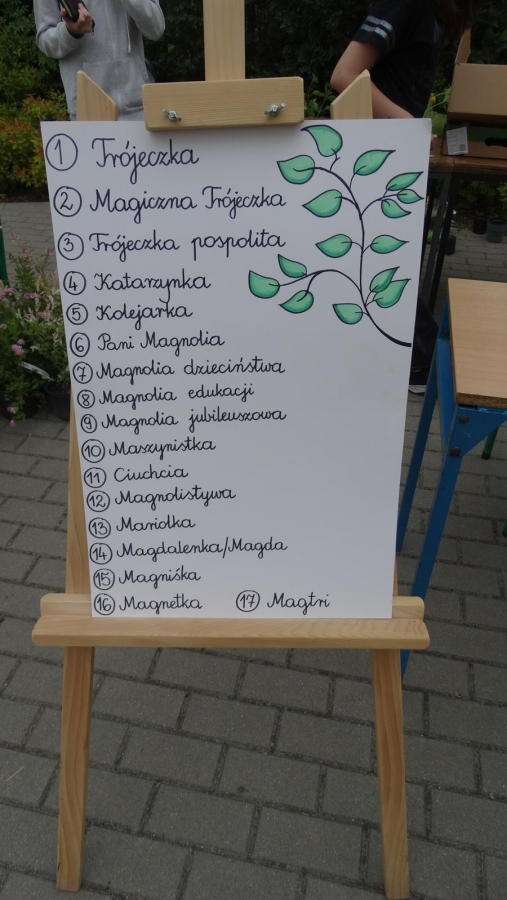 1 Trójeczka
2 Magiczna Trójeczka
3 Trójeczka pospolita
4 Katarzynka
5 Kolejarka
6 Pani Magnolia
7 Magnolia dzieciństwa
8 Magnolia edukacji
9 Magnolia jubileuszowa
10 Maszynistka
11 Ciuchcia
12 Magnolistywa
13 Mariolka
14 Magdalenka/Magda
15 Magniśka
16 Magnetka 17 Magtri